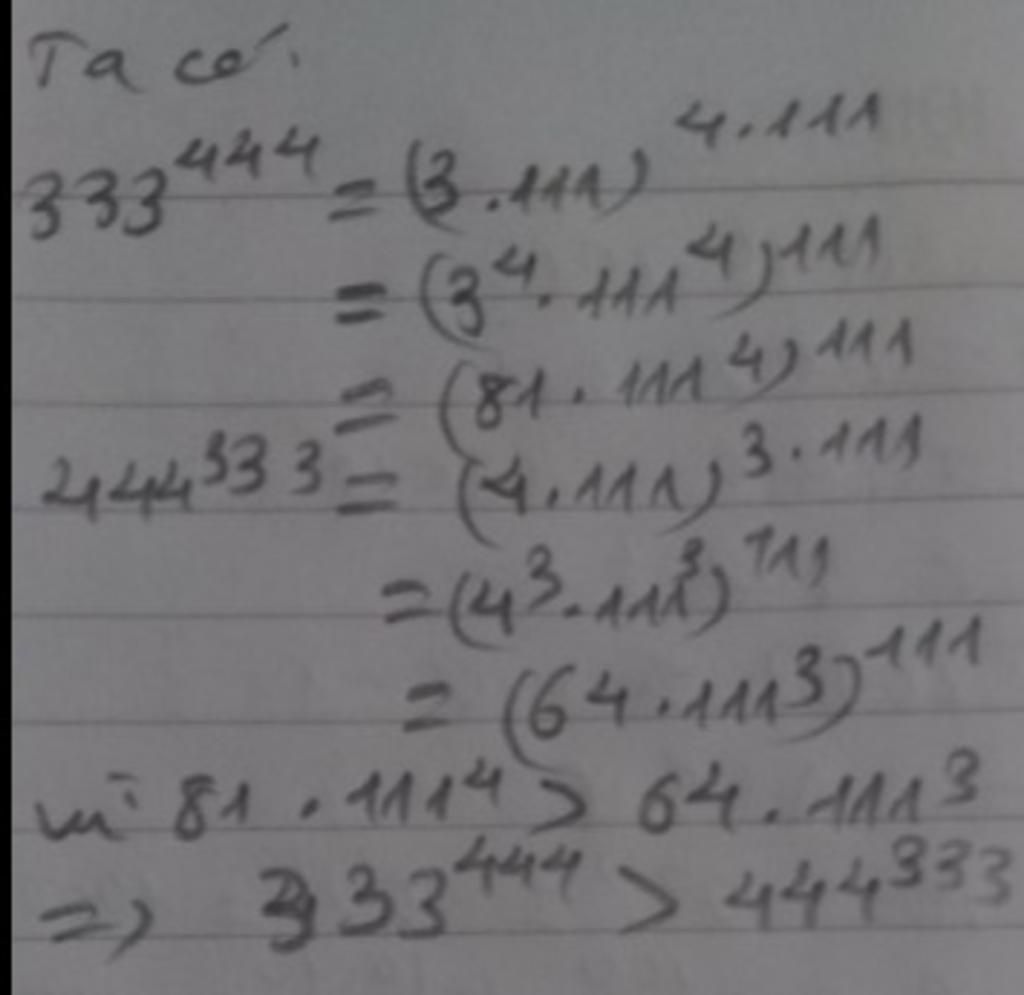 Ta có.
333⁴⁴⁴ = (3.111)⁴·¹¹¹
= (3⁴.111⁴)¹¹¹
= (81.111⁴)¹¹¹
444³³³ = (4.111)³·¹¹¹
= (4³.111³)¹¹¹
= (64.111³)¹¹¹
vì 81.111⁴ > 64.111³
=> 333⁴⁴⁴ > 444³³³